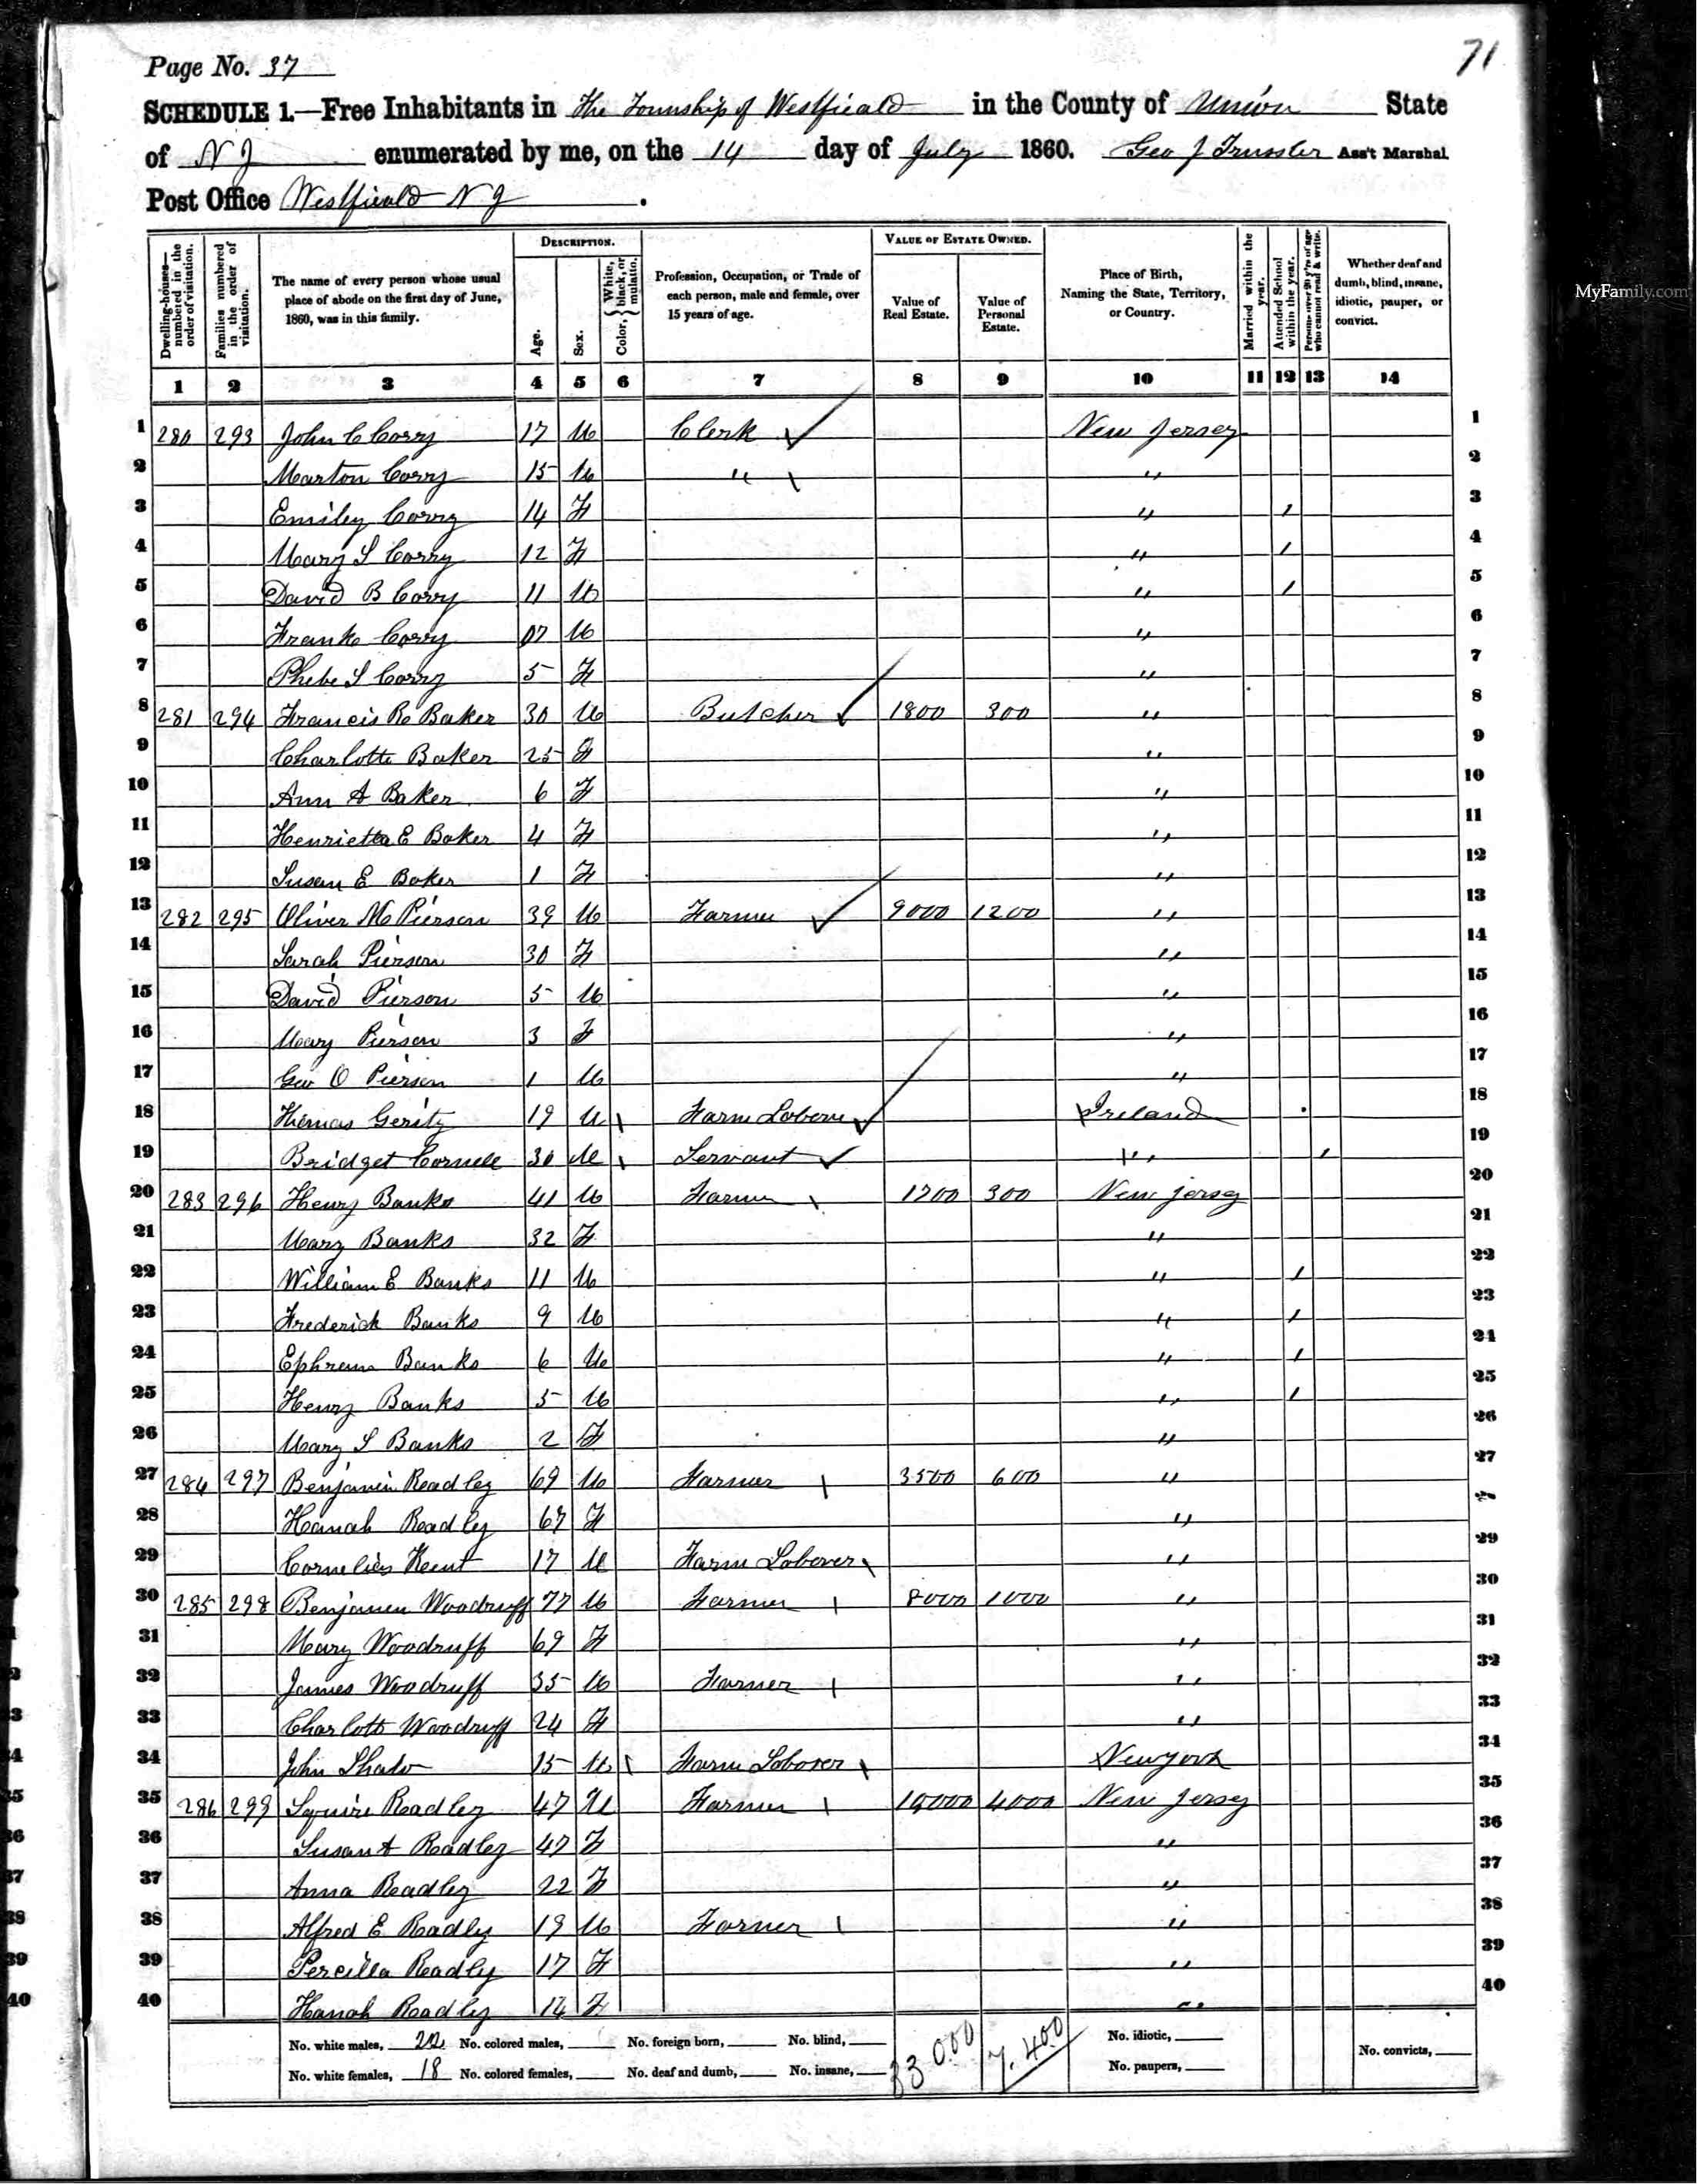 71
Page No. 37
SCHEDULE 1.—Free Inhabitants in The Township of Westfield in the County of Union State
of N J enumerated by me, on the 14 day of July 1860. Geo J Trussler Ass't Marshal
Post Office Westfield N J .
Dwelling-houses— numbered in the order of visitation.
Families numbered in the order of visitation.
The name of every person whose usual place of abode on the first day of June, 1860, was in this family.
DESCRIPTION.
Age.
Sex.
Color, { White, black, or mulatto.
Profession, Occupation, or Trade of each person, male and female, over 15 years of age.
VALUE OF ESTATE OWNED.
Value of Real Estate.
Value of Personal Estate.
Place of Birth, Naming the State, Territory, or Country.
Married within the year.
Attended School within the year.
Persons over 20 y'rs of age who cannot read & write.
Whether deaf and dumb, blind, insane, idiotic, pauper, or convict.
MyFamily.com
1 2 3 4 5 6 7 8 9 10 11 12 13 14
1 280 293 John C Corry 17 M Clerk New Jersey 1
2 Marton Corry 15 M " " 2
3 Emiley Corry 14 F " / 3
4 Mary S Corry 12 F " / 4
5 David B Corry 11 M " / 5
6 Frank Corry 07 M " 6
7 Phebe S Corry 5 F " 7
8 281 294 Francis R Baker 30 M Butcher 1800 300 " 8
9 Charlotte Baker 25 F " 9
10 Ann A Baker 6 F " 10
11 Henrietta E Baker 4 F " 11
12 Susan E Baker 1 F " 12
13 282 295 Oliver M Pierson 39 M Farmer 9000 1200 " 13
14 Sarah Pierson 30 F " 14
15 David Pierson 5 M " 15
16 Mary Pierson 3 F " 16
17 Geo O Pierson 1 M " 17
18 Geritz 19 M Farm Laborer Ireland 18
19 Bridget 30 M Servant " / 19
20 283 296 Henry Banks 41 M Farmer 300 New Jersey 20
21 Mary Banks 32 F " 21
22 William E Banks 11 M " / 22
23 Frederick Banks 9 M " / 23
24 Ephram Banks 6 M " / 24
25 Henry Banks 5 M " / 25
26 Mary S Banks 2 F " 26
27 284 297 Benjamin Readley 69 M Farmer 3500 600 " 27
28 Hanah Readley 67 F " 28
29 Cornelius 17 M Farm Laborer " 29
30 285 298 Benjamen Woodruff 77 M Farmer 8000 1000 " 30
31 Mary Woodruff 69 F " 31
32 James Woodruff 35 M Farmer " 32
33 Charlott Woodruff 24 F " 33
34 John 15 M Farm Laborer New york 34
35 286 299 Squire Readley 47 M Farmer 4000 New Jersey 35
36 Susan A Readley 47 F " 36
37 Anna Readley 22 F " 37
38 Alfred E Readly 19 M Farmer " 38
39 Percilla Readly 17 F " 39
40 Hanah Readley 14 F " 40
No. white males, 22 No. colored males, No. foreign born, No. blind, 33 000 7.400 No. idiotic, No. convicts,
No. white females, 18 No. colored females, No. deaf and dumb, No. insane, No. paupers,